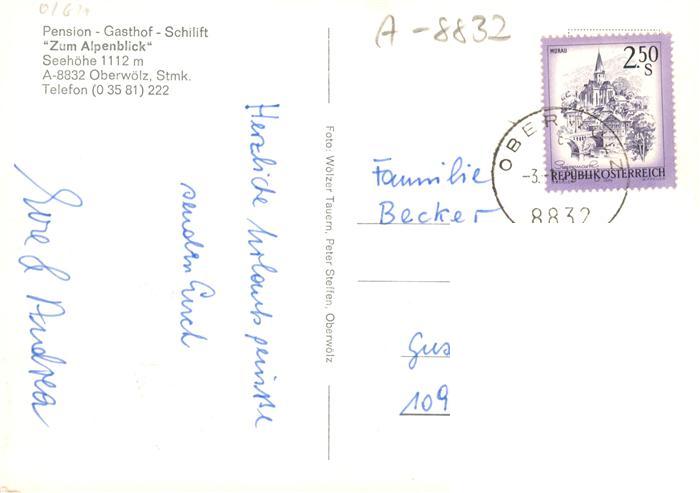 Pension - Gasthof - Schilift
"Zum Alpenblick"
Seehöhe 1112 m
A-8832 Oberwölz, Stmk.
Telefon (0 35 81) 222
A-8832
MURAU
2.50
S
REPUBLIK ÖSTERREICH
OBER
-3.
8832
Herzliche Urlaubsgrüße
senden Euch
& Andrea
Foto: Wölzer Tauern, Peter Steffen, Oberwölz
Faumilie
Becker
Gus
109